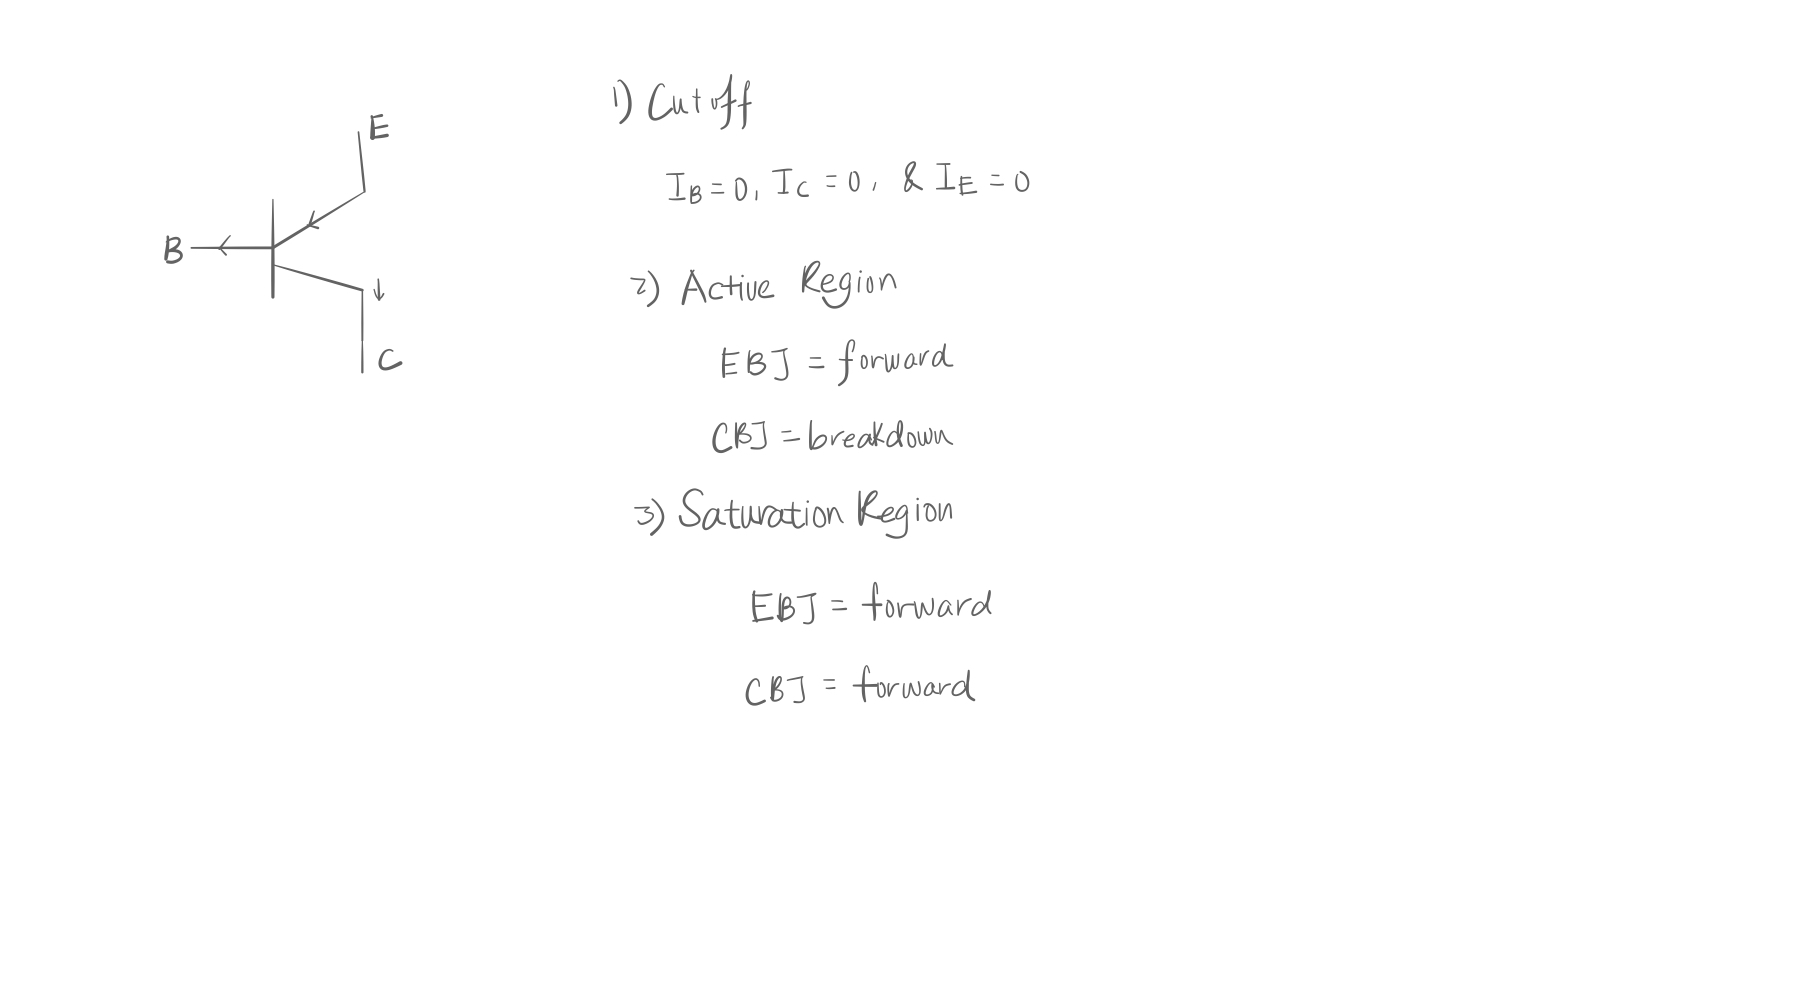 E
B
C
1) Cutoff
I_B = 0, I_C = 0, & I_E = 0
2) Active Region
EBJ = forward
CBJ = breakdown
3) Saturation Region
EBJ = forward
CBJ = forward